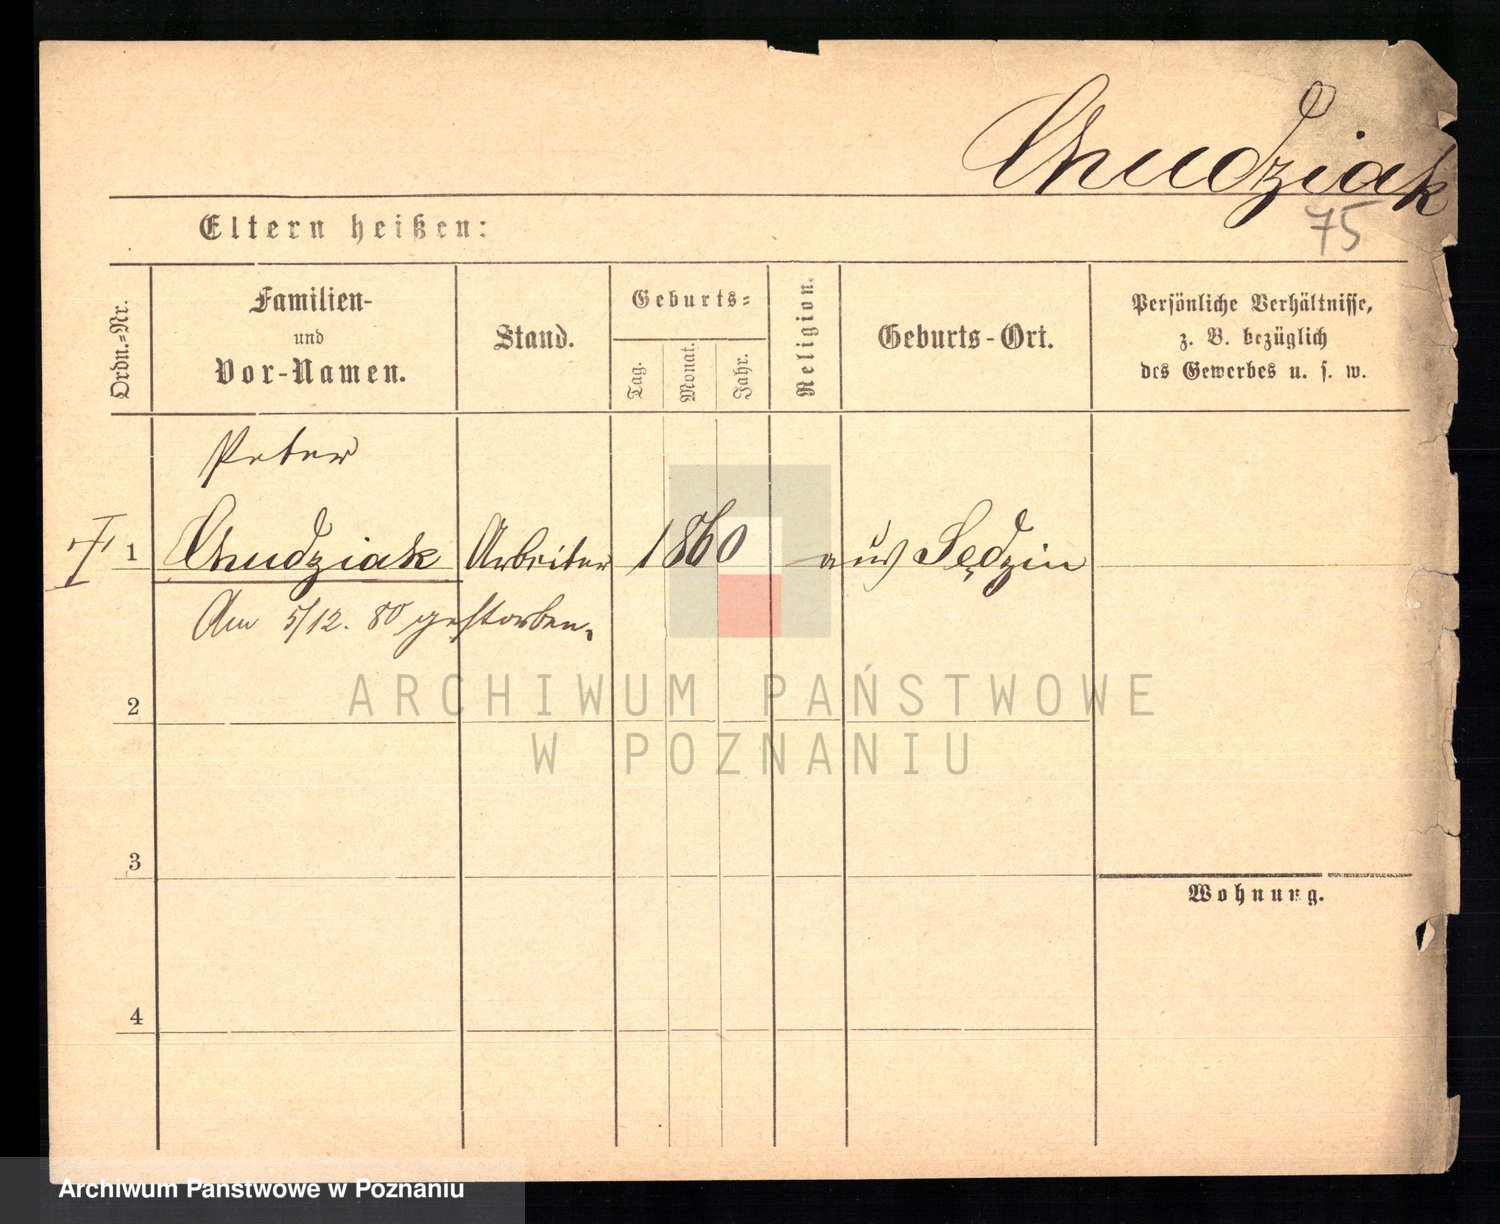 Chudziak
75
Eltern heißen:
Ordn.-Nr.
Familien-
und
Vor-Namen.
Stand.
Geburts-
Tag.
Monat.
Jahr.
Religion.
Geburts-Ort.
Persönliche Verhältnisse,
z. B. bezüglich
des Gewerbes u. s. w.
Peter
1 Chudziak Arbeiter 1860 aus Sędzin
Am 5/12. 80 gestorben.
2
3
4
Wohnung.
ARCHIWUM PAŃSTWOWE
W POZNANIU
Archiwum Państwowe w Poznaniu